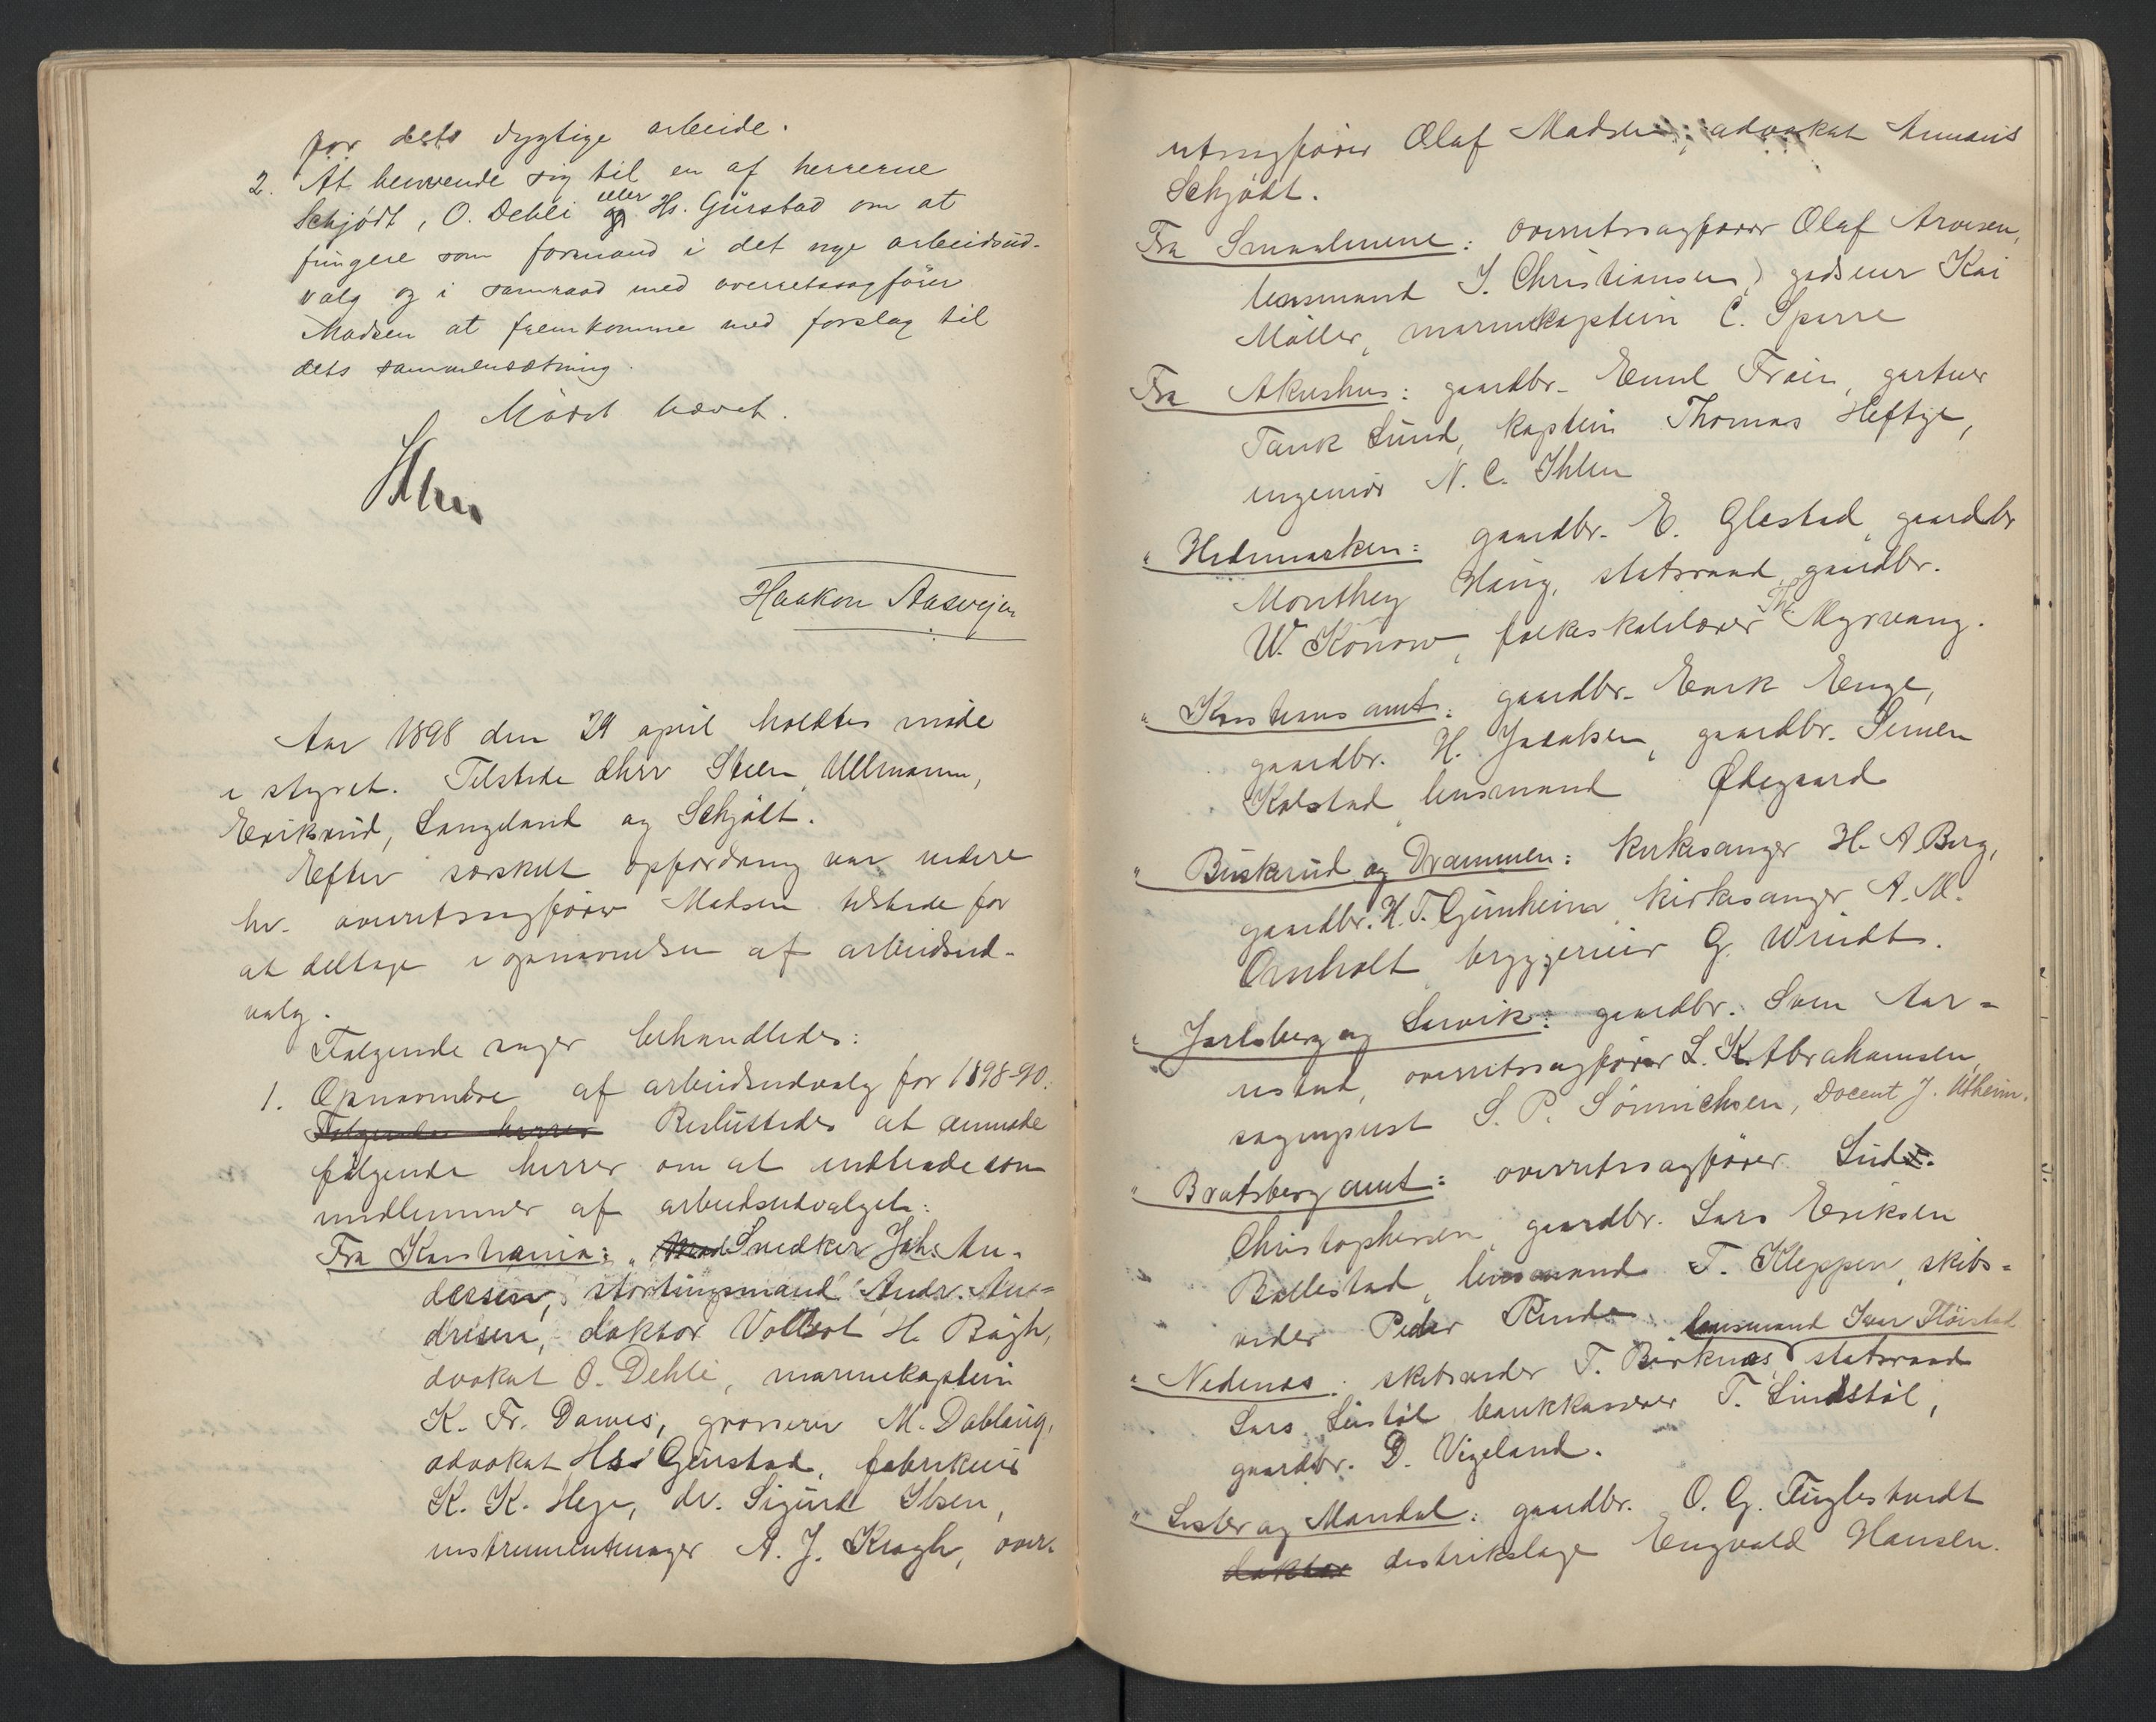 for dets dygtige arbeide.
2. At henvende sig til en af herrerne
Schjødt, O. Dehli eller Hs. Gürstad om at
fungere som formand i det nye arbeidsud-
valg og i samraad med overretssagfører
Madsen at fremkomme med forslag til
dets sammensætning.
Mødet hævet.
Haakon Aasvejen
Aar 1898 den 29 april holdtes møde
i styret. Tilstede dhrr Steen, Ullmann,
Eriksrud, Langeland og Schjødt.
Efter særskilt opfordring var videre
hr. overretssagfører Madsen tilstede for
at deltage i opnævnelsen af arbeidsud-
valg.
Følgende sager behandledes:
1. Opnævnelse af arbeidsudvalg for 1898-90.
Følgende herrer Besluttedes at anmode
følgende herrer om at indtræde som
medlemmer af arbeidsudvalget:
Fra Kristiania: " Snedker Joh. An-
dersen, stortingsmand Andr. An-
dresen, doktor Volbert H. Bügh,
dvokat O. Dehli, marinekaptein
K. Fr. Dawes, grosserer M. Dobloug,
advokat Hs. Gürstad, fabrikeier
K. K. Heje, dr. Sigurd Ibsen,
instrumentmager A. J. Kragh, over-
retssagfører Olaf Madsen, advokat Annæus
Schjødt.
Fra Smaalenene: overretssagfører Olaf Arvesen,
lensmand J. Christiansen, godseier Kai
Møller, marinekaptein C. Sparre
Fra Akershus: gaardbr. Emil Frøen, gartner
Tank Lund, kaptein Thomas Heftye,
ingeniør N. C. Ihlen
" Hedemarken: gaardbr. E. Glestad, gaardbr
Monthey Haug, statsraad, gaardbr.
W. Konow, folkeskolelærer Th. Myrvang.
" Kristians amt: gaardbr. Enrk Enge,
gaardbr. H. Jacobsen, gaardbr. Simen
Kolstad, lensmand Ødegaard
" Buskerud og Drammen: kirkesanger H. A. Berg,
gaardbr. H. T. Gunheim, kirkesanger A. M.
Omholt, bryggerieier G. Wriedt.
" Jarlsberg og Larvik: gaardbr. Sven Aar-
restad, overretssagfører L. K. Abrahamsen,
sogneprest S. P. Sönnichsen, Docent J. Utheim.
" Bratsberg amt: overretssagfører Lud.
Christophersen, gaardbr. Lars Eriksen
Bollestad, lensmand T. Kleppen, skibs-
reder Peder Rinde.
lensmand Ivar Fløistad
" Nedenes: skibsreder T. Birknes, statsraad
Lars Liestøl, bankkasserer T. Lindstøl,
gaardbr. D. Vigeland.
" Lister og Mandal: gaardbr. O. G. Fuglestvedt
doktor distrikslæge Engvald Hansen.